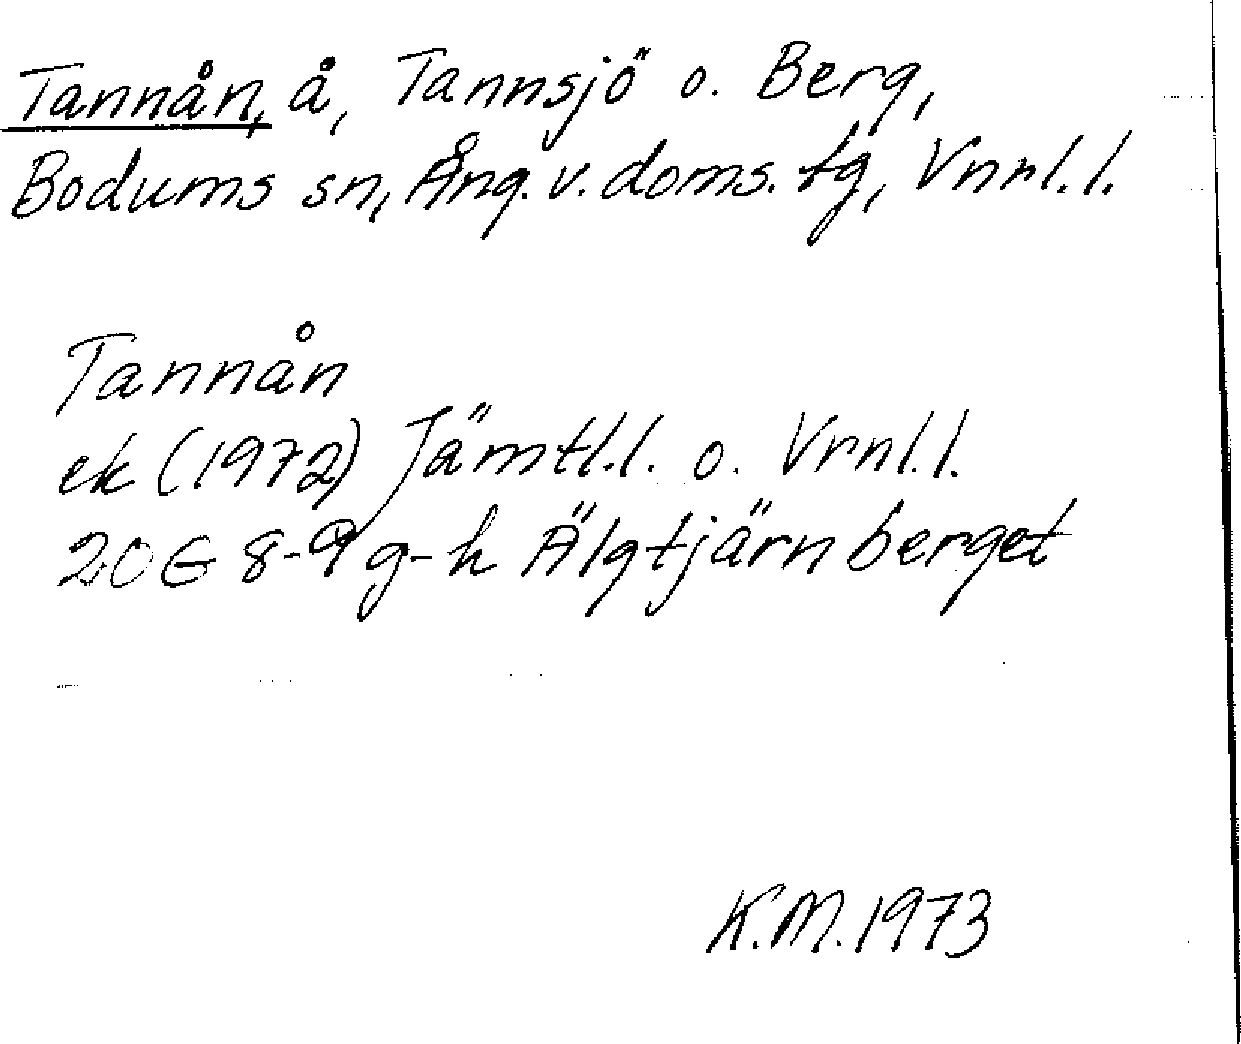 Tannån, å, Tannsjö o. Berg,
Bodums sn, Ång. v. doms. tg, Vnrl. l.
Tannån
ek (1972) Jämtl. l. o. Vrnl. l.
20G 8-9 g-h Älgtjärnberget
K.M. 1973